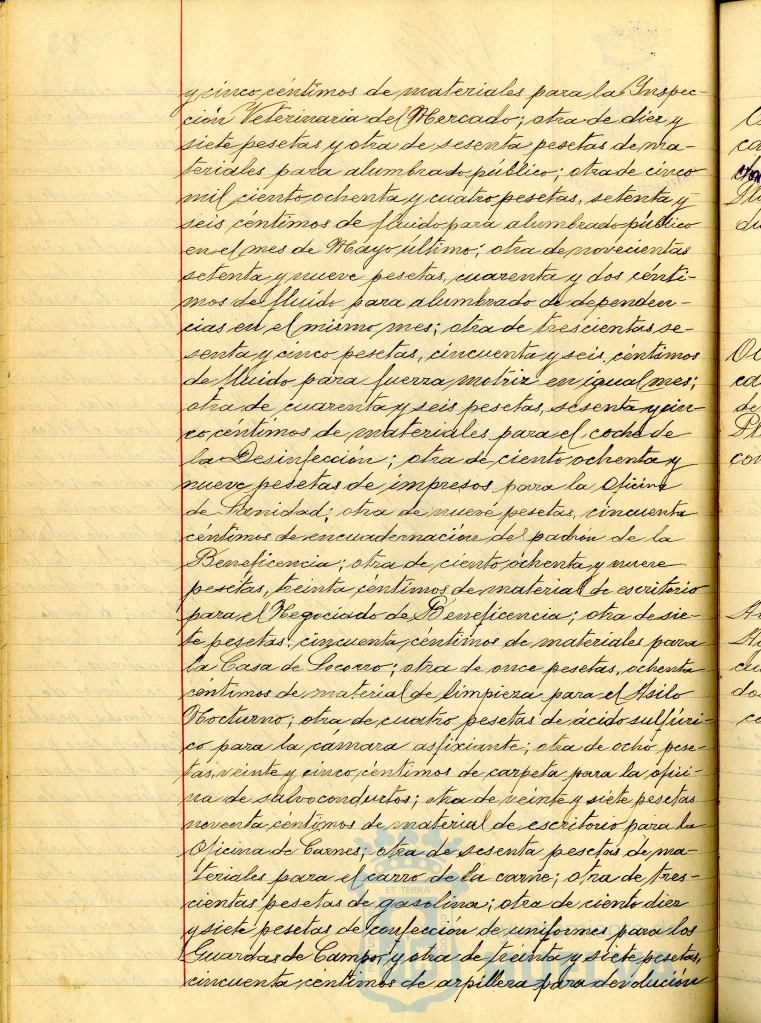 y cinco céntimos de materiales para la Inspec-
ción Veterinaria del Mercado; otra de diez y
siete pesetas y otra de sesenta pesetas de ma-
teriales para alumbrado público; otra de cinco
mil ciento ochenta y cuatro pesetas, setenta y
seis céntimos de fluido para alumbrado público
en el mes de Mayo último; otra de novecientas
setenta y nueve pesetas, cuarenta y dos cénti-
mos de fluido para alumbrado de dependen-
cias en el mismo mes; otra de trescientas se-
senta y cinco pesetas, cincuenta y seis céntimos
de fluido para fuerza motriz en igual mes;
otra de cuarenta y seis pesetas, sesenta y cin-
co céntimos de materiales para el coche de
la Desinfección; otra de ciento ochenta y
nueve pesetas de impresos para la oficina
de Sanidad; otra de nueve pesetas, cincuenta
céntimos de encuadernación del padrón de la
Beneficencia; otra de ciento ochenta y nueve
pesetas, treinta céntimos de material de escritorio
para el Negociado de Beneficencia; otra de sie-
te pesetas, cincuenta céntimos de materiales para
la Casa de Socorro; otra de once pesetas, ochenta
céntimos de material de limpieza para el Asilo
Nocturno; otra de cuatro pesetas de ácido sulfúri-
co para la cámara asfixiante; otra de ocho pese-
tas, veinte y cinco céntimos de carpeta para la ofici-
na de salvoconductos; otra de veinte y siete pesetas
noventa céntimos de material de escritorio para la
Oficina de Carnes; otra de sesenta pesetas de ma-
teriales para el carro de la carne; otra de tres-
cientas pesetas de gasolina; otra de ciento diez
y siete pesetas de confección de uniformes para los
Guardas de Campo; y otra de treinta y siete pesetas,
cincuenta céntimos de arpillera para devolución
ET TERRA
HUELVA